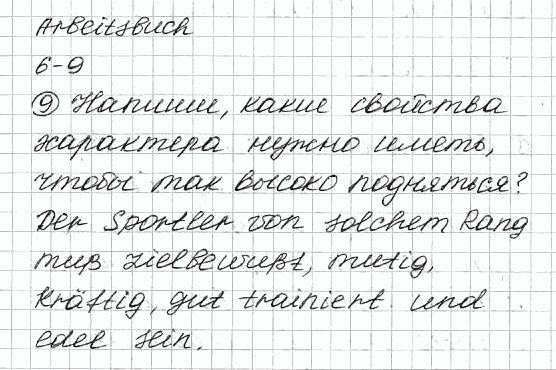 Arbeitsbuch
6-9
⑨ Напиши, какие свойства
характера нужно иметь,
чтобы так высоко подняться?
Der Sportler von solchem Rang
muß zielbewußt, mutig,
kräftig, gut trainiert und
edel sein.